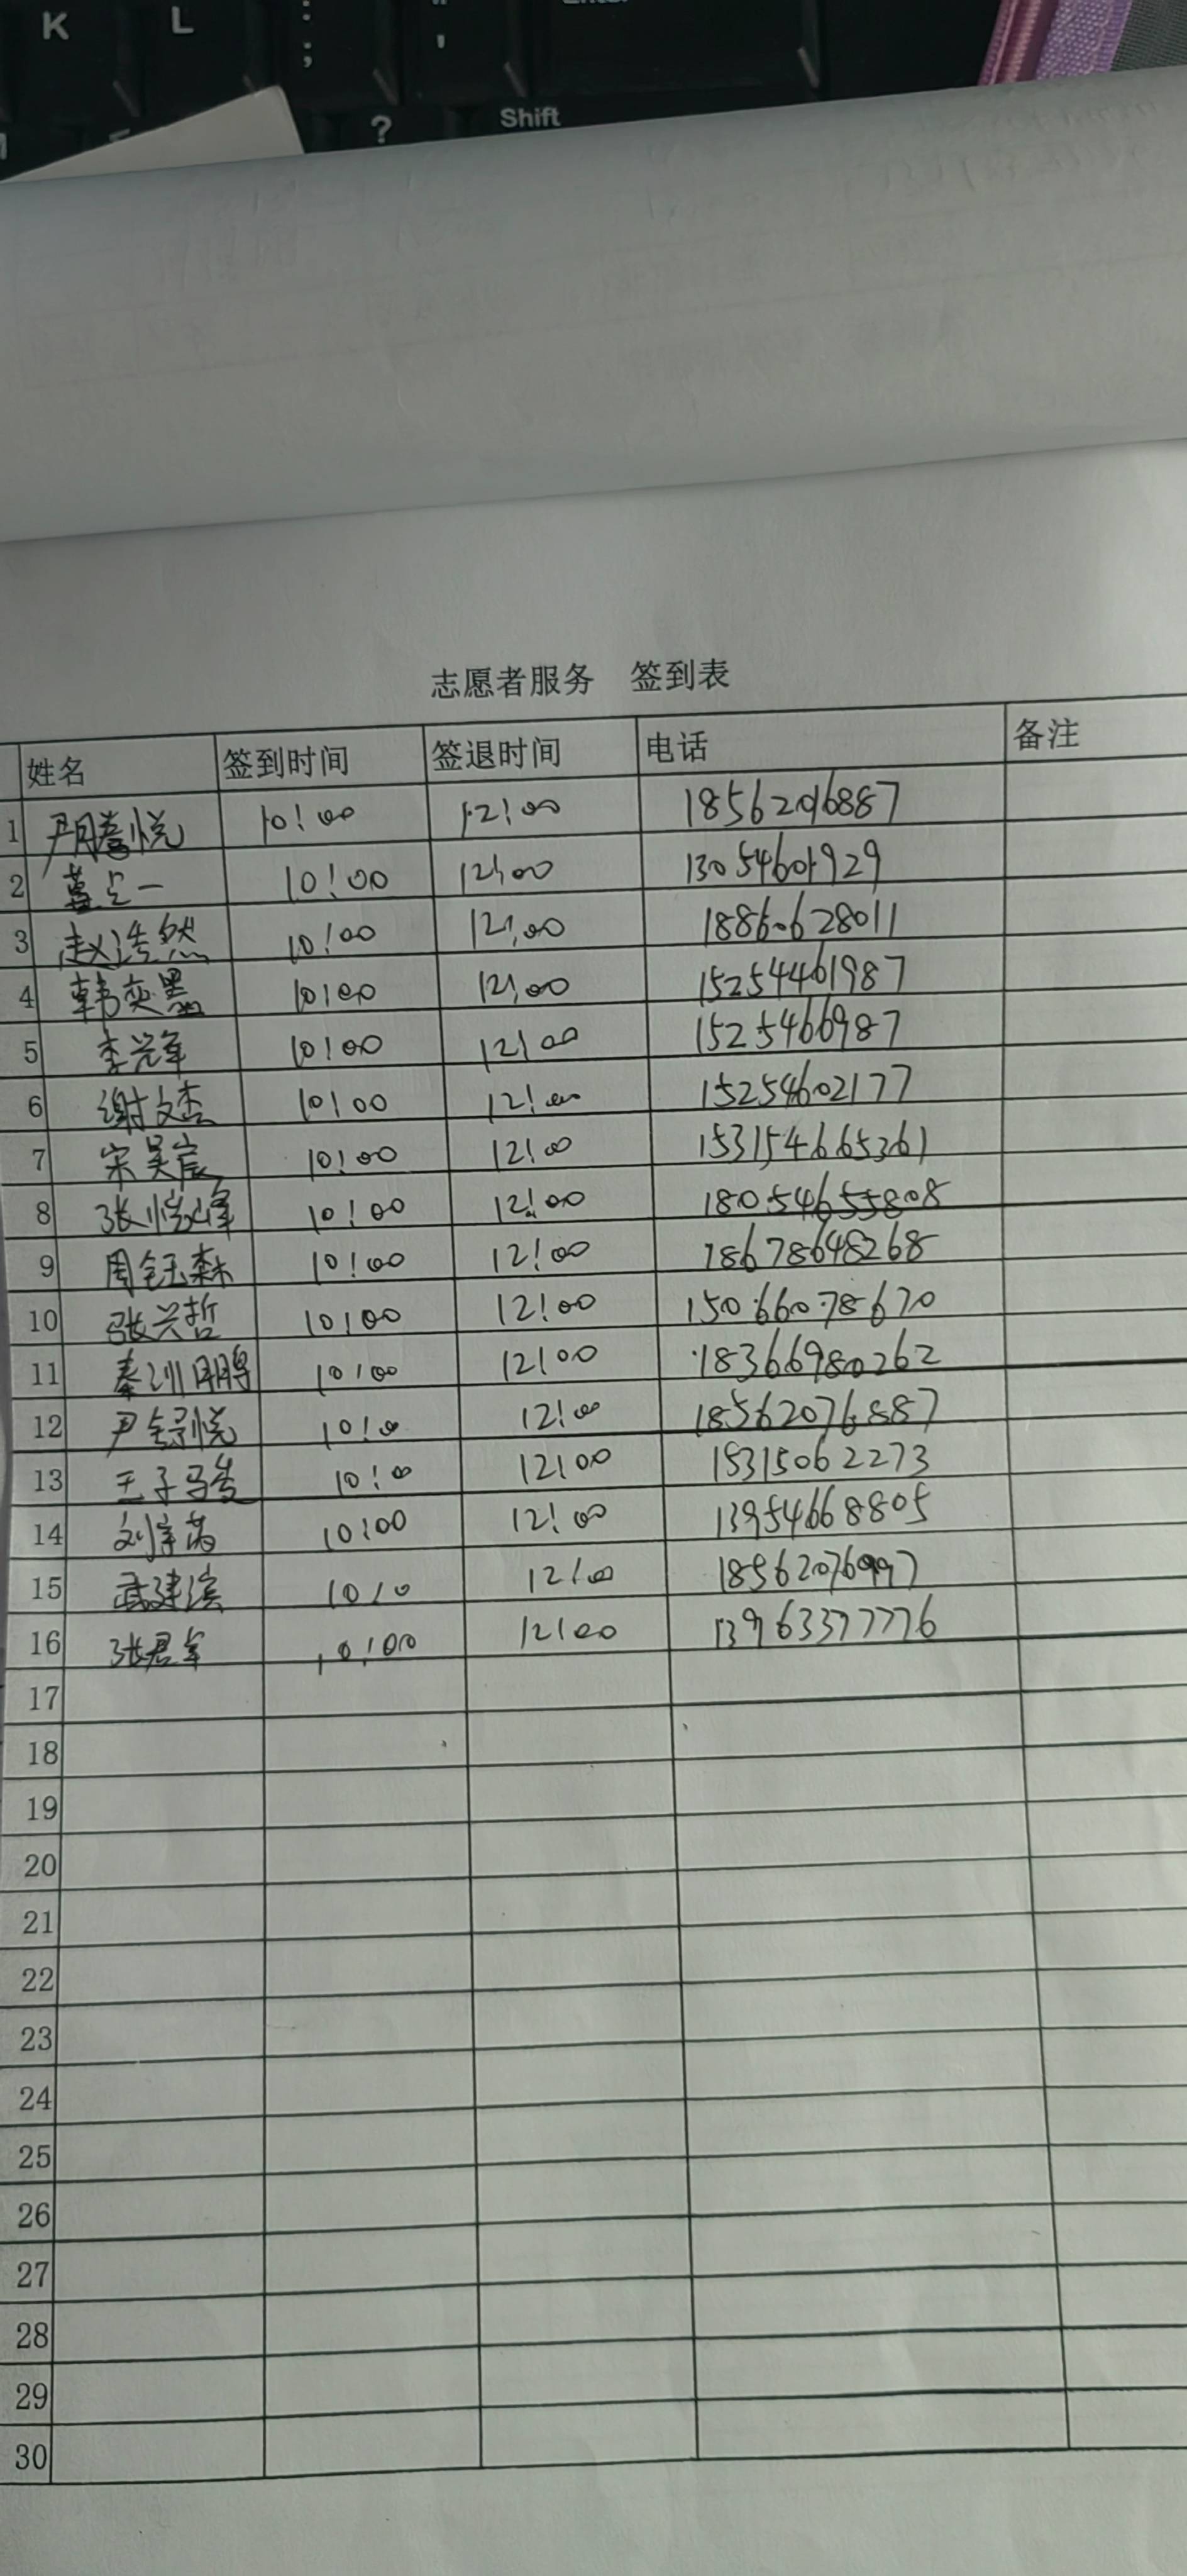 K L : ; " '
? Shift
志愿者服务 签到表
姓名 签到时间 签退时间 电话 备注
1 尹腾悦 10:00 12:00 18562016887
2 一 10:00 12:00 13054601929
3 赵浩然 10:00 12:00 18860628011
4 韩奕墨 10:00 12:00 15254461987
5 李兴军 10:00 12:00 1525466987
6 谢文杰 10:00 12:00 15254602177
7 宋昊宸 10:00 12:00 153154665361
8 张悦峰 10:00 12:00 18054655808
9 周钰森 10:00 12:00 18678648268
10 张兴哲 10:00 12:00 15066078670
11 秦训鹏 10:00 12:00 18366980262
12 尹 悦 10:00 12:00 18562076887
13 王子 10:00 12:00 15315062273
14 刘 10:00 12:00 13954668805
15 武建滨 10:0 12:00 185620769997
16 张君军 10:00 12:00 13963377776
17
18
19
20
21
22
23
24
25
26
27
28
29
30